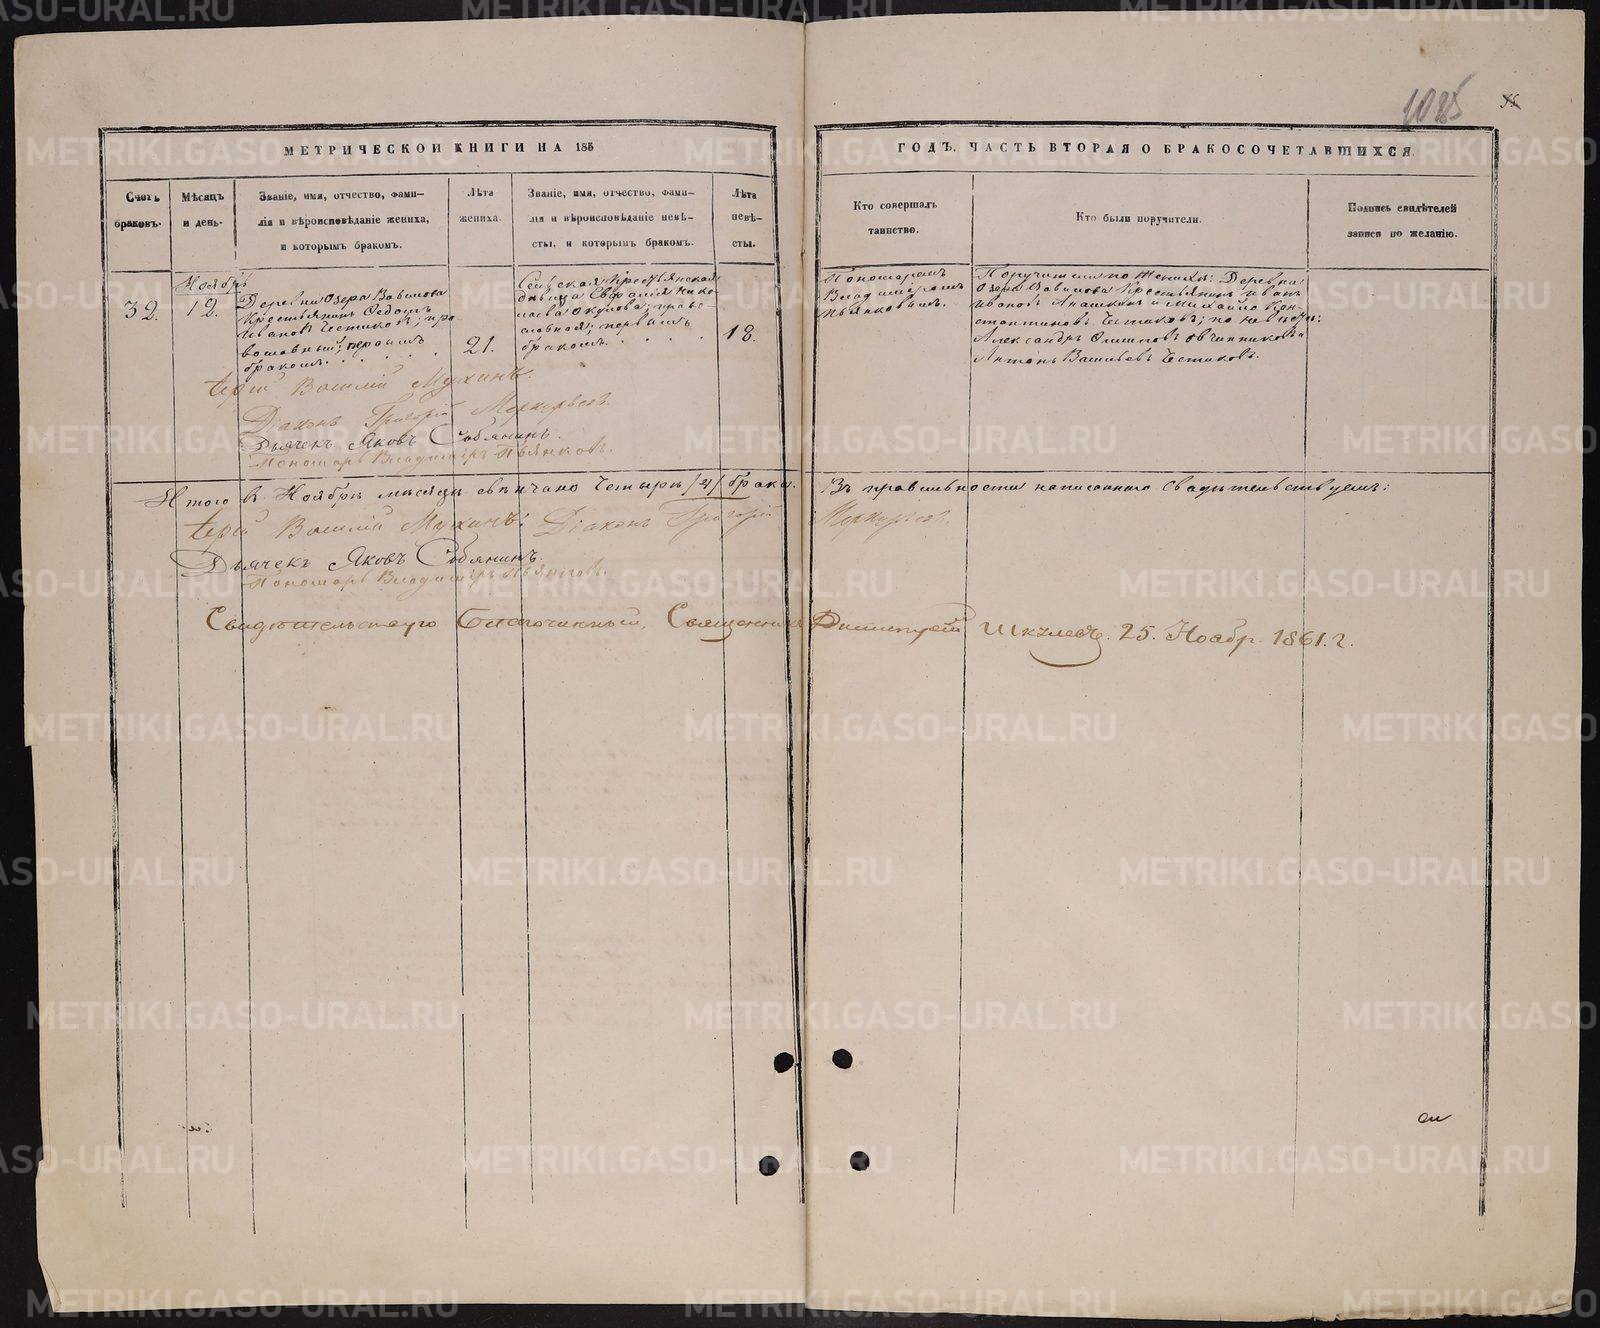 1085
МЕТРИЧЕСКОЙ КНИГИ НА 185
ГОДЪ, ЧАСТЬ ВТОРАЯ О БРАКОСОЧЕТАВШИХСЯ.
Счетъ браковъ.
Мѣсяцъ и день.
Званіе, имя, отчество, фами-
лія и вѣроисповѣданіе жениха,
и которымъ бракомъ.
Лѣта жениха.
Званіе, имя, отчество, фами-
лія и вѣроисповѣданіе невѣ-
сты, и которымъ бракомъ.
Лѣта невѣ-
сты.
Кто совершалъ
таинство.
Кто были поручители.
Подпись свидѣтелей
записи по желанію.
Ноябрь
32.
12.
Деревни Озера Вавилова
Крестьянинъ Федотъ
Ивановъ Чистяковъ, пра-
вославный; первымъ
бракомъ.
21.
Сельская Крестьянская
дѣвица Евфалія Нико-
лаева Окулова; право-
славная; первымъ
бракомъ.
18.
Пономаремъ
Владиміромъ
Пьянковымъ.
Поручители по женихѣ: Деревни
Озера Вавилова Крестьянинъ Иванъ
Ивановъ и Михайло Кон-
стантиновъ Чистяковъ; по невѣстѣ:
Александръ Овчинниковъ
Антонъ Васильевъ Чистяковъ.
Іерей Василій Мухинъ.
Діаконъ Григорій Меркурьевъ.
Дьячекъ Яковъ Собянинъ.
Пономарь Владиміръ Пьянковъ.
Итого въ Ноябрѣ мѣсяцѣ вѣнчано четыре /4/ брака. Въ правильности написаннаго свидѣтельствуемъ:
Іерей Василій Мухинъ: Діаконъ Григорій Меркурьевъ.
Дьячекъ Яковъ Собянинъ.
Пономарь Владиміръ Пьянковъ.
Свидѣтельствую Благочинный, Священникъ 25. Ноябр. 1861. г.
METRIKI.GASO-URAL.RU